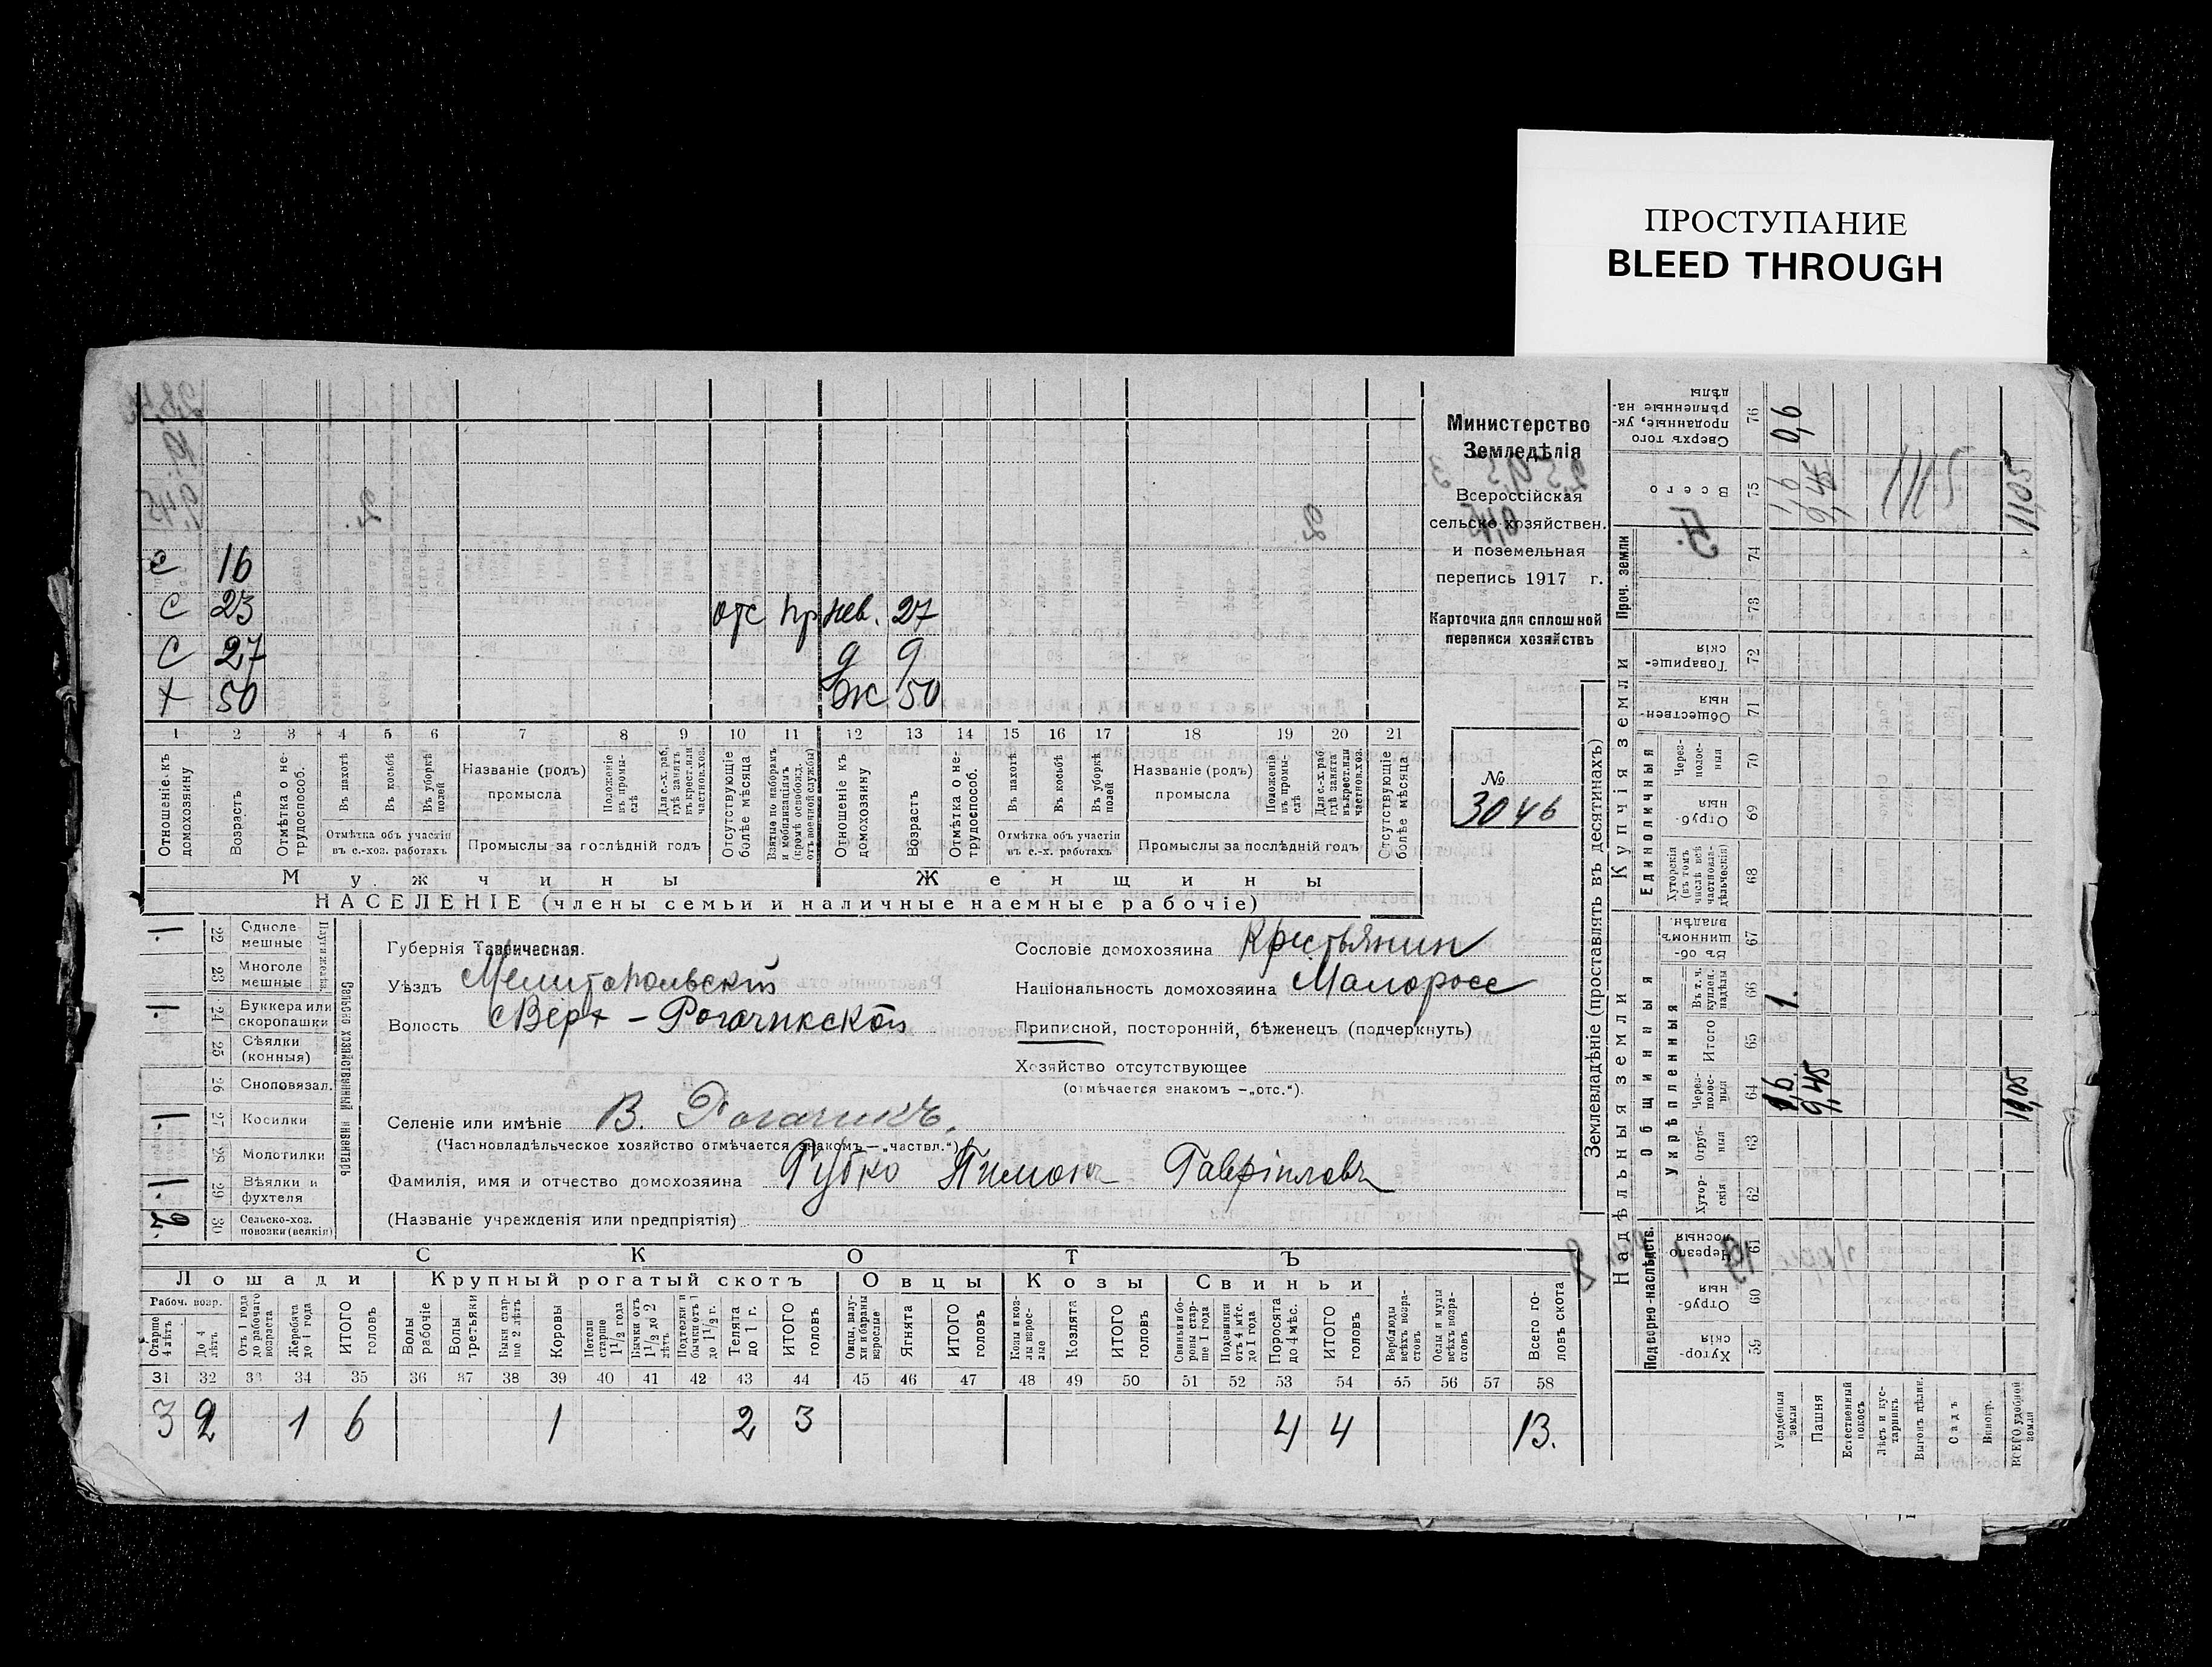 ПРОСТУПАНИЕ
BLEED THROUGH
Министерство
Земледѣлія
Всероссійская
сельско-хозяйствен.
и поземельная
перепись 1917 г.
Карточка для сплошной
переписи хозяйствъ
№
3046
с 16
с 23 отс пр нев. 27
с 27 д 9
х 50 ж 50
1 2 3 4 5 6 7 8 9 10 11 12 13 14 15 16 17 18 19 20 21
Отношеніе къ домохозяину
Возрастъ
Отмѣтка о не-трудоспособ.
Въ пахотѣ
Въ косьбѣ
Въ уборкѣ полей
Отмѣтка объ участіи въ с.-хоз. работахъ
Названіе (родъ) промысла
Положеніе въ промы-слѣ
Для с.-х. раб. гдѣ занятъ въ крест. или частнов. хоз.
Промыслы за послѣдній годъ
Отсутствующіе болѣе мѣсяца
Взятые по наборамъ и мобилизаціямъ (кромѣ освобожд. отъ военной службы)
Отношеніе къ домохозяину
Возрастъ
Отмѣтка о не-трудоспособ.
Въ пахотѣ
Въ косьбѣ
Въ уборкѣ полей
Отмѣтка объ участіи въ с.-х. работахъ
Названіе (родъ) промысла
Положеніе въ промы-слѣ
Для с.-х. раб. гдѣ занята въ крест. или частнов. хоз.
Промыслы за послѣдній годъ
Отсутствующіе болѣе мѣсяца
Мужчины Женщины
НАСЕЛЕНІЕ (члены семьи и наличные наемные рабочіе)
Сельско хозяйственный инвентарь
22 Одноле мешные 1.
23 Многоле мешные
24 Буккера или скоропашки 1.
25 Сѣялки (конныя)
26 Сноповязал.
27 Косилки 1.
28 Молотилки
29 Вѣялки и фухтеля 1.
30 Сельско-хоз. повозки (всякія) 2.
Губернія Таврическая.
Уѣздъ Мелитопольскій
Волость Верх-Рогачикской
Селеніе или имѣніе В. Рогачикъ.
(Частновладѣльческое хозяйство отмѣчается знакомъ—„частвл.“)
Фамилія, имя и отчество домохозяина Губко Пимонъ Гавріиловъ
(Названіе учрежденія или предпріятія)
Сословіе домохозяина Крестьянин
Національность домохозяина Малоросс
Приписной, посторонній, бѣженецъ (подчеркнуть)
Хозяйство отсутствующее
(отмѣчается знакомъ —„отс.“).
СКОТЪ
Лошади Крупный рогатый скотъ Овцы Козы Свиньи
Рабоч. возр.
Старше 4 лѣтъ
До 4 лѣтъ
Отъ 1 года до рабочаго возраста
Жеребята до 1 года
ИТОГО головъ
Волы рабочіе
Волы третьяки
Быки стар-ше 2 лѣтъ
Коровы
Нетели старше 1½ года
Бычки отъ 1½ до 2 лѣтъ
Подтелки и бычки отъ 1 до 1½ г.
Телята до 1 г.
ИТОГО головъ
Овцы, валу-хи и бараны взрослые
Ягнята
ИТОГО головъ
Козы и коз-лы взрос-лые
Козлята
ИТОГО головъ
Свиньи и бо-ровы стар-ше 1 года
Подсвинки отъ 4 мѣс. до 1 года
Поросята до 4 мѣс.
ИТОГО головъ
Верблюды всѣхъ возра-стовъ
Ослы и мулы всѣхъ возра-стовъ
Всего го-ловъ скота
31 32 33 34 35 36 37 38 39 40 41 42 43 44 45 46 47 48 49 50 51 52 53 54 55 56 57 58
3 2 1 6 1 2 3 4 4 13.
Землевладѣніе (проставлять въ десятинахъ)
Надѣльныя земли Купчія земли Проч. земли
Подворно-наслѣдств.
Общинныя
Укрѣпленныя
Единоличныя
59 Хутор-скія
60 Отруб-ныя
61 Черезпо-лосныя
62 Хутор-скія
63 Отруб-ныя
64 Через-полос-ныя
65 Итого
66 Въ т. ч. куплен. надѣлы
67 Въ об-щинномъ владѣн.
68 Хуторскія (въ томъ числѣ всѣ частновла-дѣльческія)
69 Отруб-ныя
70 Через-полос-ныя
71 Обществен-ныя
72 Товарище-скія
73
74
75 Всего
76 Сверхъ того проданные, ук-рѣпленные на-дѣлы
Усадебныя земли 1. 0,6
Пашня 9,45 9,45
Естественный покосъ
Лѣсъ и кус-тарникъ
Выгонъ цѣлин.
Садъ
Виногр.
ВСЕГО удобной земли 11,05 11,05